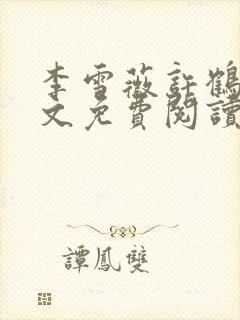 李雪薇許鶴
文免費閱讀
譚鳳雙